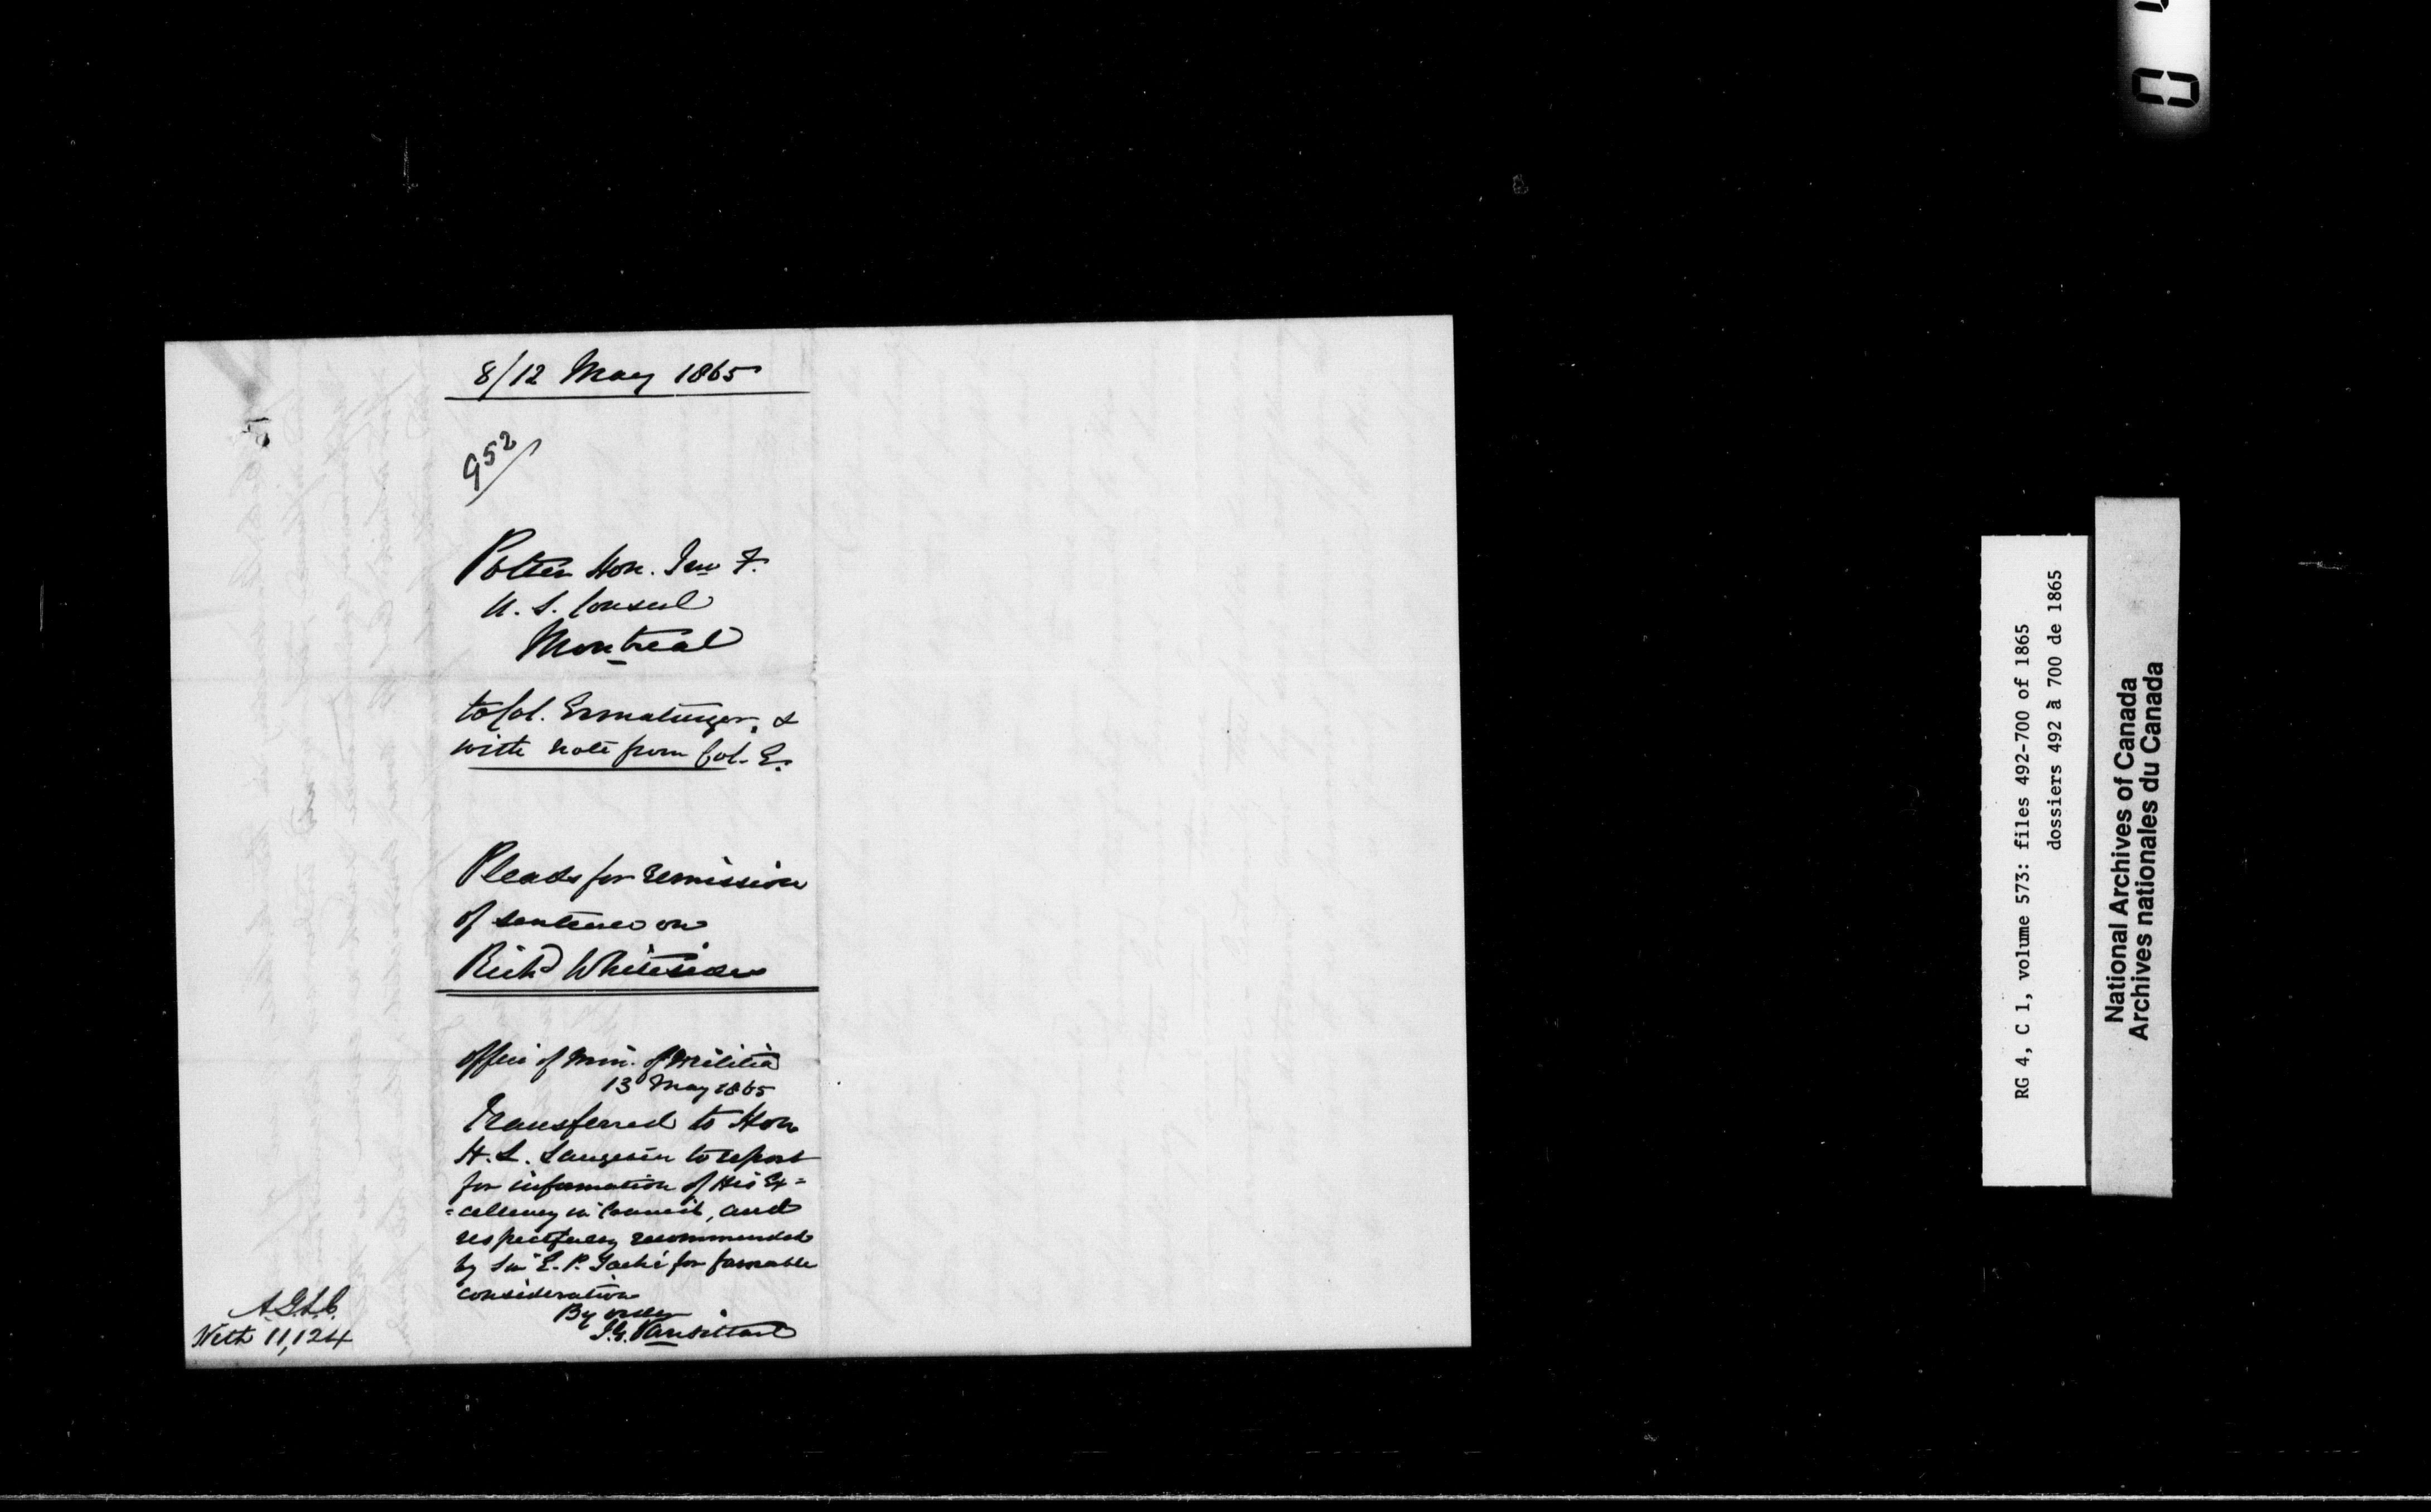 8/12 May 1865
952/
Potter Hon. Jno F.
U. S. Consul
Montreal
to Col. Ermatinger, &
with note from Col. E.
Pleads for remission
of sentence on
Richd Whitesides
Office of Min. of Militia
13 May 1865
Transferred to Hon
H. L. Langevin to report
for information of His Ex=
=cellency in Council, and
respectfully recommended
by Sir E. P. Taché for favorable
consideration
By order
J.G. Vansittart
A.G.L.C.
With 11,124
RG 4, C 1, volume 573: files 492-700 of 1865
dossiers 492 à 700 de 1865
National Archives of Canada
Archives nationales du Canada